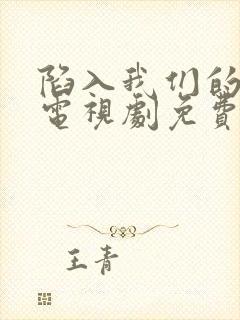 陷入我们的
電視劇免費
王青